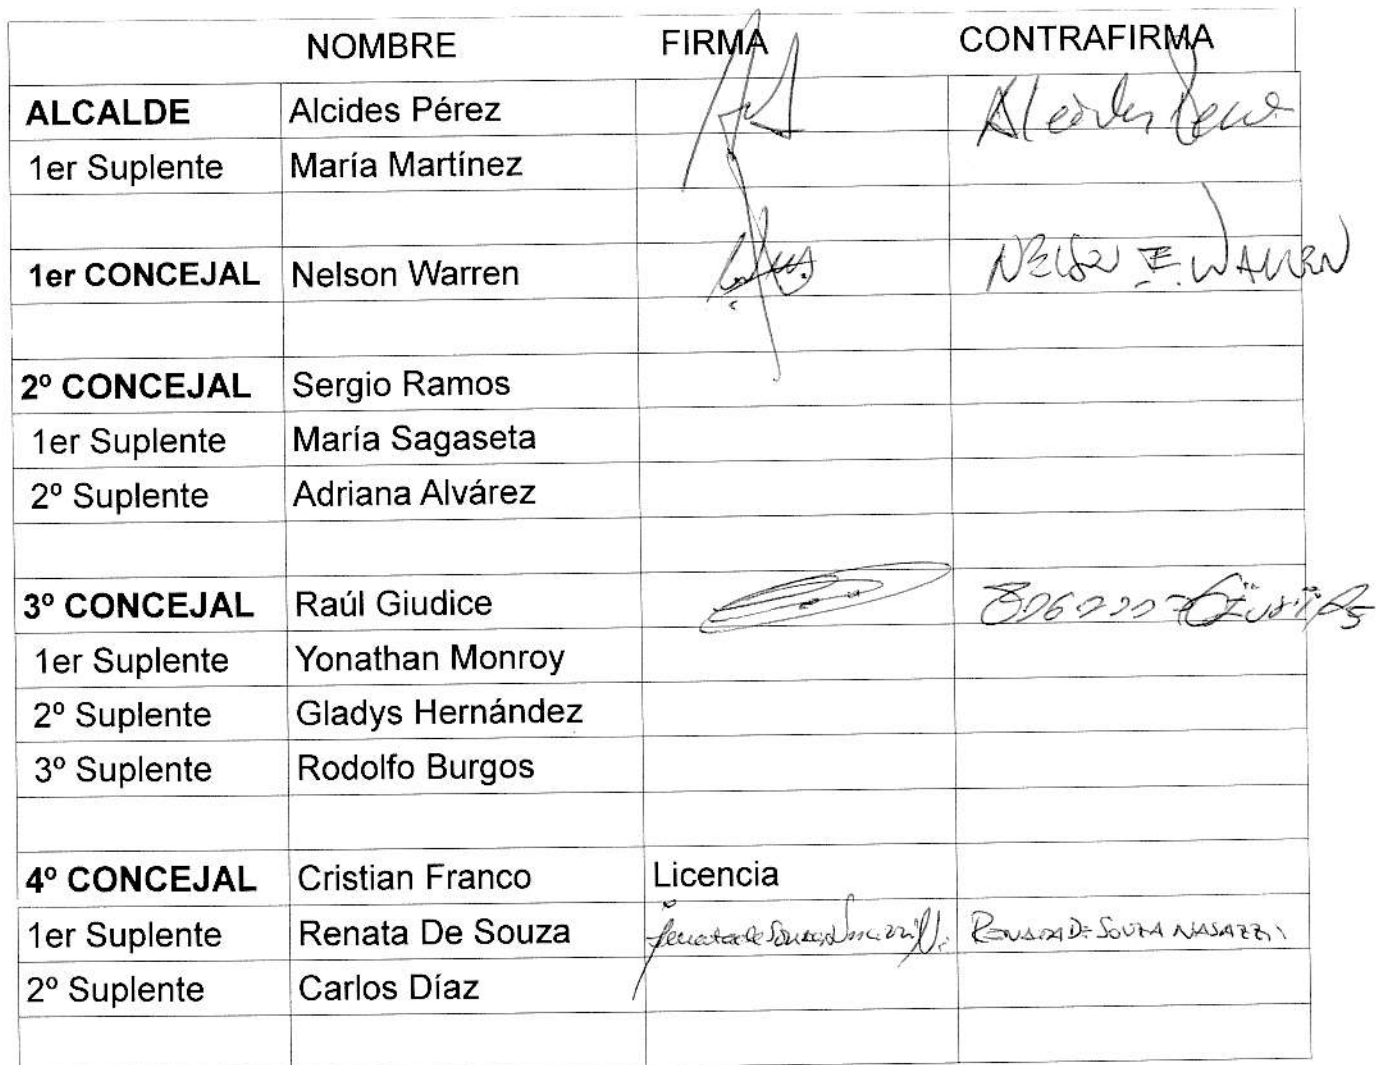 NOMBRE FIRMA CONTRAFIRMA
ALCALDE Alcides Pérez
1er Suplente María Martínez
1er CONCEJAL Nelson Warren NELSON E. WARREN
2º CONCEJAL Sergio Ramos
1er Suplente María Sagaseta
2º Suplente Adriana Alvárez
3º CONCEJAL Raúl Giudice
1er Suplente Yonathan Monroy
2º Suplente Gladys Hernández
3º Suplente Rodolfo Burgos
4º CONCEJAL Cristian Franco Licencia
1er Suplente Renata De Souza RENATA DE SOUZA NASAZZI
2º Suplente Carlos Díaz